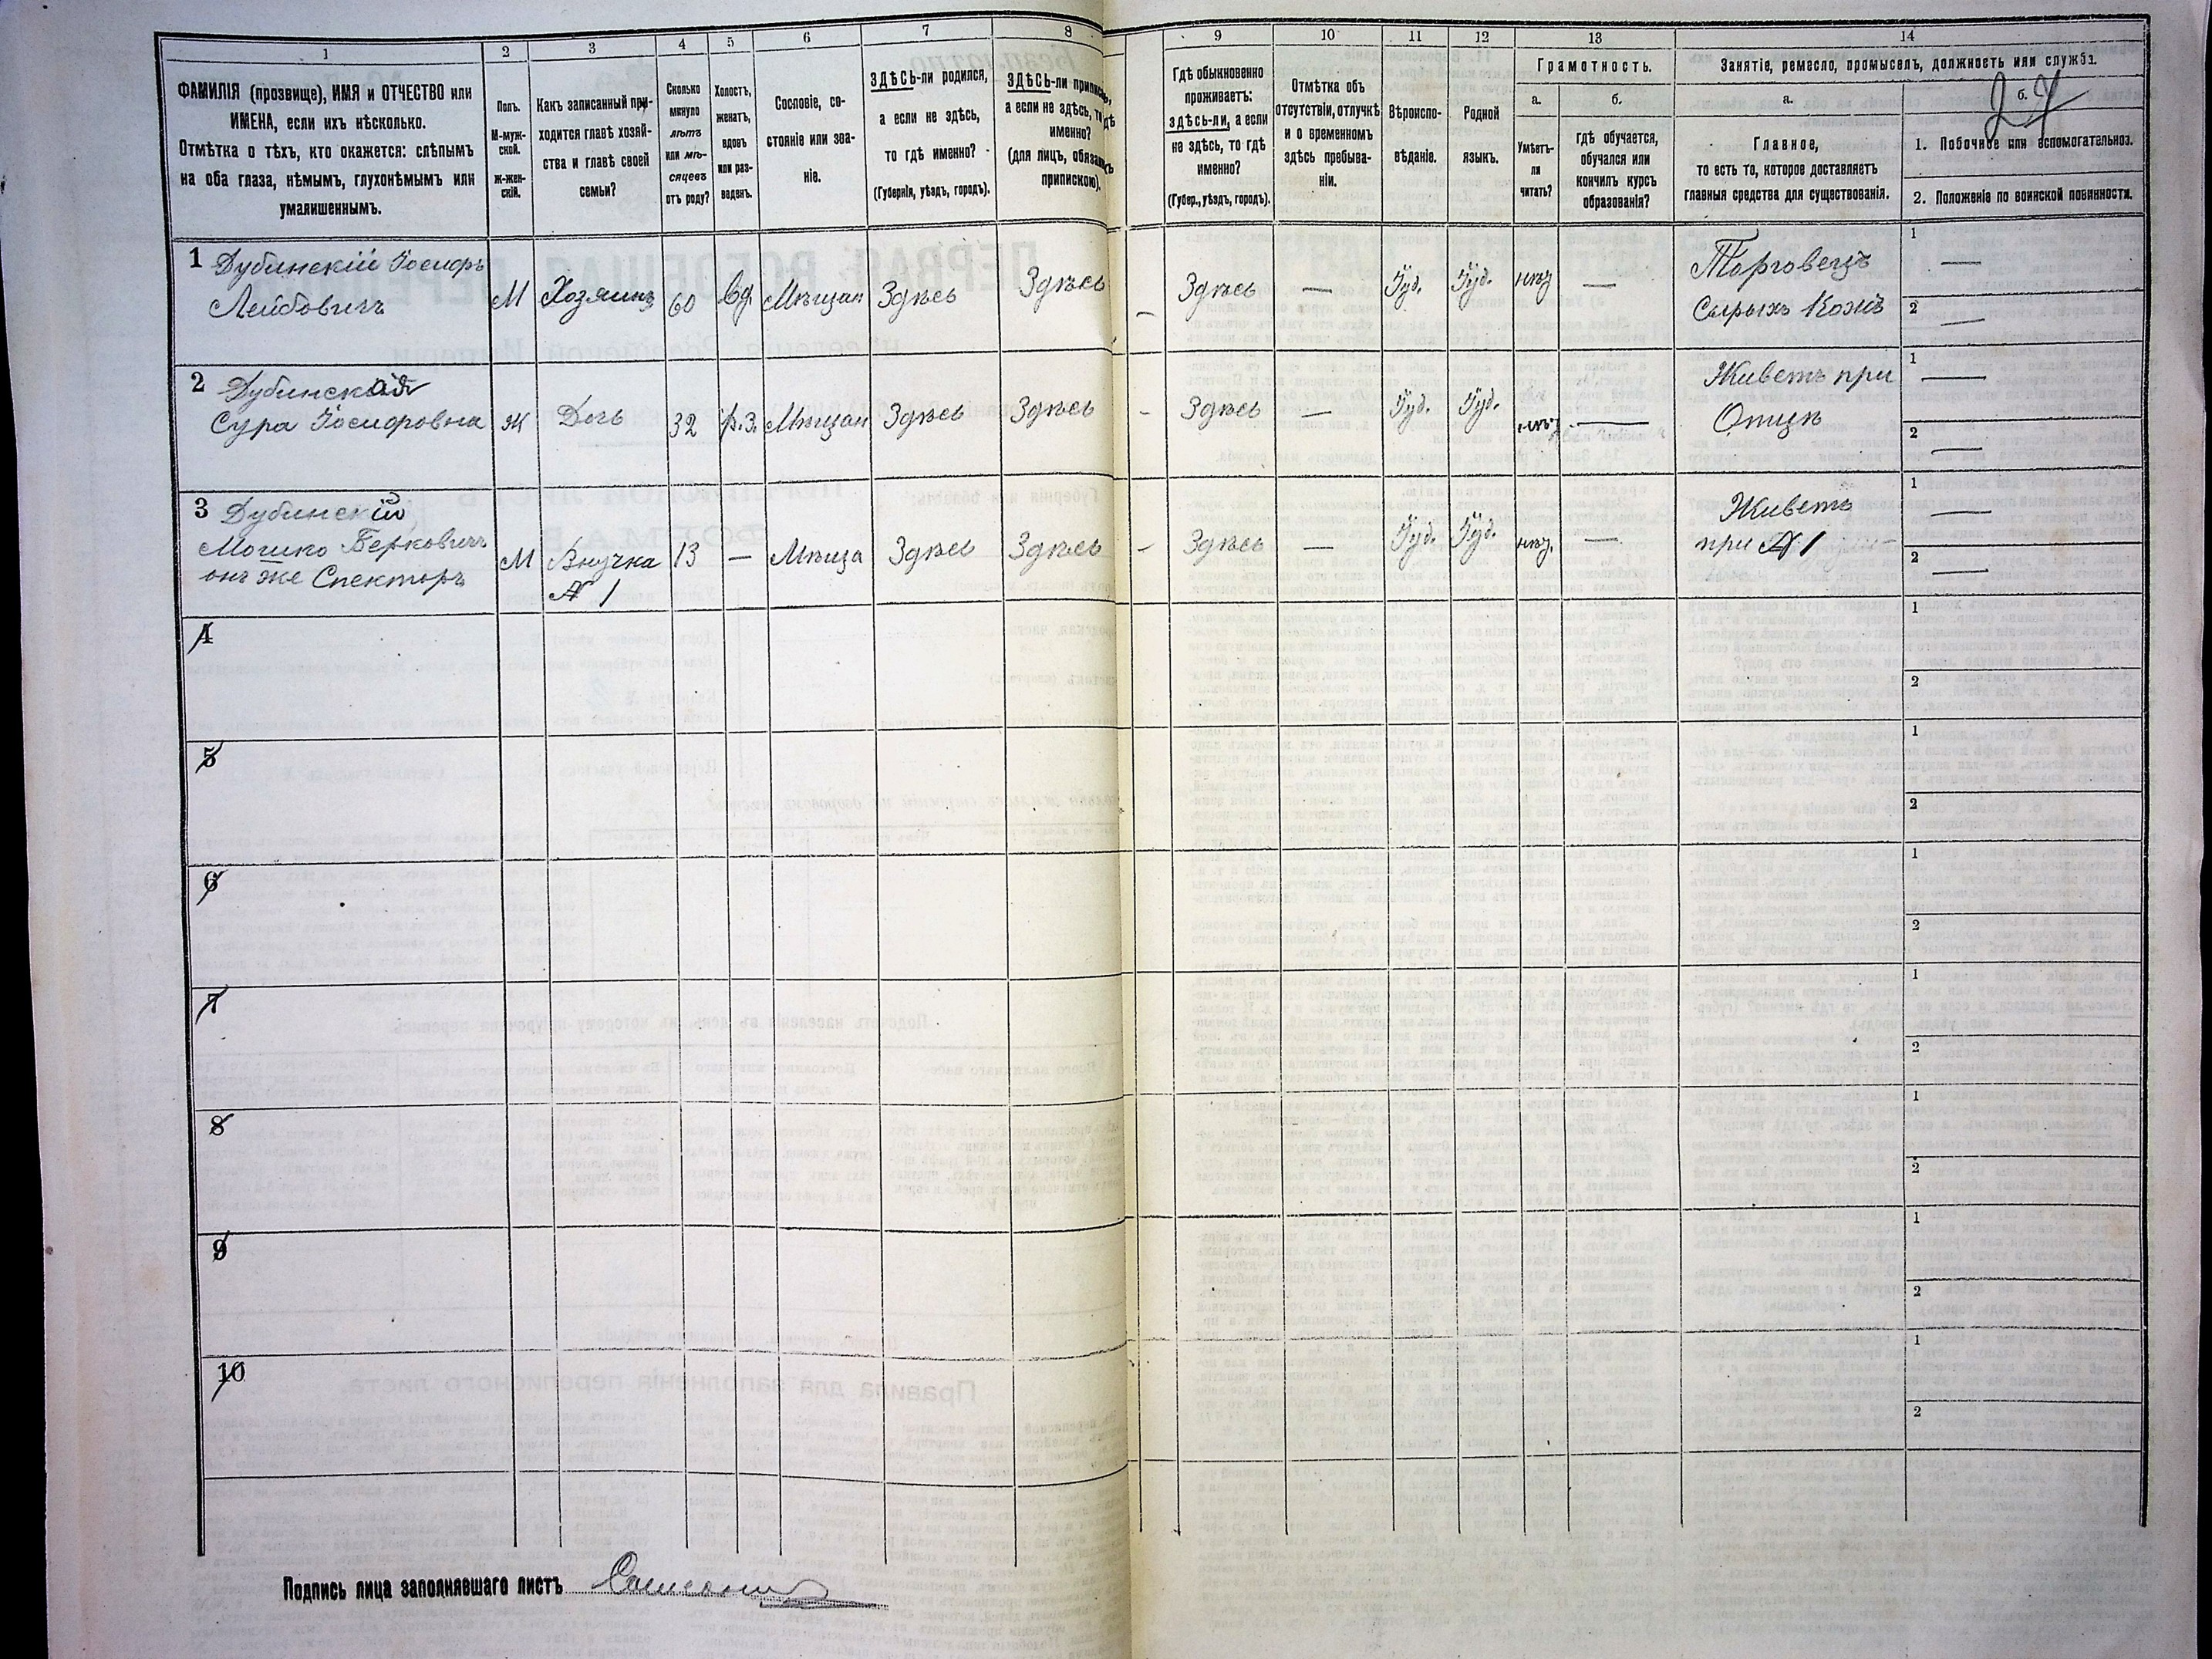 1
2
3
4
5
6
7
8
9
10
11
12
13
14
ФАМИЛІЯ (прозвище), ИМЯ и ОТЧЕСТВО или
ИМЕНА, если ихъ нѣсколько.
Отмѣтка о тѣхъ, кто окажется: слѣпымъ
на оба глаза, нѣмымъ, глухонѣмымъ или
умалишеннымъ.
Полъ.
М-муж-
ской.
ж-жен-
скій.
Какъ записанный при-
ходится главѣ хозяй-
ства и главѣ своей
семьи?
Сколько
минуло
лѣтъ
или мѣ-
сяцевъ
отъ роду?
Холостъ,
женатъ,
вдовъ
или раз-
веденъ.
Сословіе, со-
стояніе или зва-
ніе.
ЗДѢСЬ-ли родился,
а если не здѣсь,
то гдѣ именно?
(Губернія, уѣздъ, городъ).
ЗДѢСЬ-ли приписанъ,
а если не здѣсь, то гдѣ
именно?
(для лицъ, обязанныхъ
припискою).
Гдѣ обыкновенно
проживаетъ:
здѣсь-ли, а если
не здѣсь, то гдѣ
именно?
(Губер., уѣздъ, городъ).
Отмѣтка объ
отсутствіи, отлучкѣ
и о временномъ
здѣсь пребыва-
ніи.
Вѣроиспо-
вѣданіе.
Родной
языкъ.
Грамотность.
а.
Умѣетъ-
ли
читать?
б.
гдѣ обучается,
обучался или
кончилъ курсъ
образованія?
Занятіе, ремесло, промыселъ, должность или служба.
а.
Главное,
то есть то, которое доставляетъ
главныя средства для существованія.
б.
24
1. Побочное или вспомогательное.
2. Положеніе по воинской повинности.
1 Дубинскій Іосифъ
Лейбовичъ
М
Хозяинъ
60
вд.
Мѣщан
Здѣсь
Здѣсь
—
Здѣсь
—
Іуд.
Іуд.
нѣт
—
Торговецъ
Сырыхъ Кожъ
1 —
2 —
2 Дубинская
Сура Іосифовна
Ж
Дочь
32
р.з.
Мѣщан
Здѣсь
Здѣсь
-
Здѣсь
—
Іуд.
Іуд.
нѣт
—
Живетъ при
Отцѣ
1 —
2 —
3 Дубинскій
Мошко Берковичъ
онъ же Спекторъ
М
Внучка
№ 1
13
—
Мѣща
Здѣсь
Здѣсь
-
Здѣсь
—
Іуд.
Іуд.
нѣт.
—
Живетъ
при № 1
1 —
2 —
4
1
2
5
1
2
6
1
2
7
1
2
8
1
2
9
1
2
10
1
2
Подпись лица заполнявшаго листъ